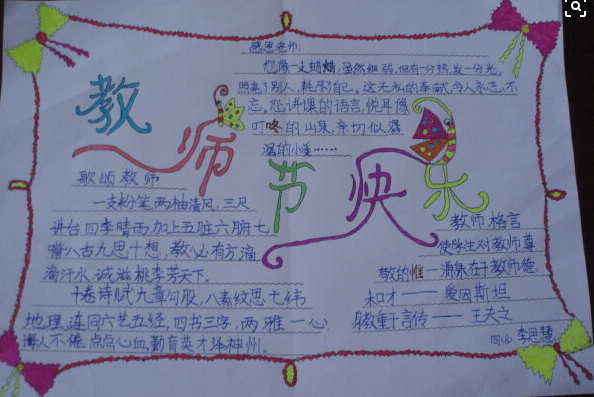 教师节快乐
感恩老师:
您像一支蜡烛,虽然细弱,但有一分热,发一分光,
照亮了别人,耗尽了自己。这无私的奉献,令人永志不
忘。您讲课的语言,悦耳像
叮咚的山泉,亲切似潺
潺的小溪……
歌颂教师
一支粉笔,两袖清风,三尺
讲台四季晴雨,加上五脏六腑七
嘴八舌九思十想,教必有方滴
滴汗水,诚滋桃李芳天下。
十卷诗赋九章勾股,八索纹思七纬
地理,连同六艺五经,四书三字,两雅一心,
诲人不倦,点点心血,勤育英才泽神州。
教师格言
使学生对教师尊
敬的惟一源泉在于教师德
和才——爱因斯坦
身教重于言传——王夫之
四.8 李思慧